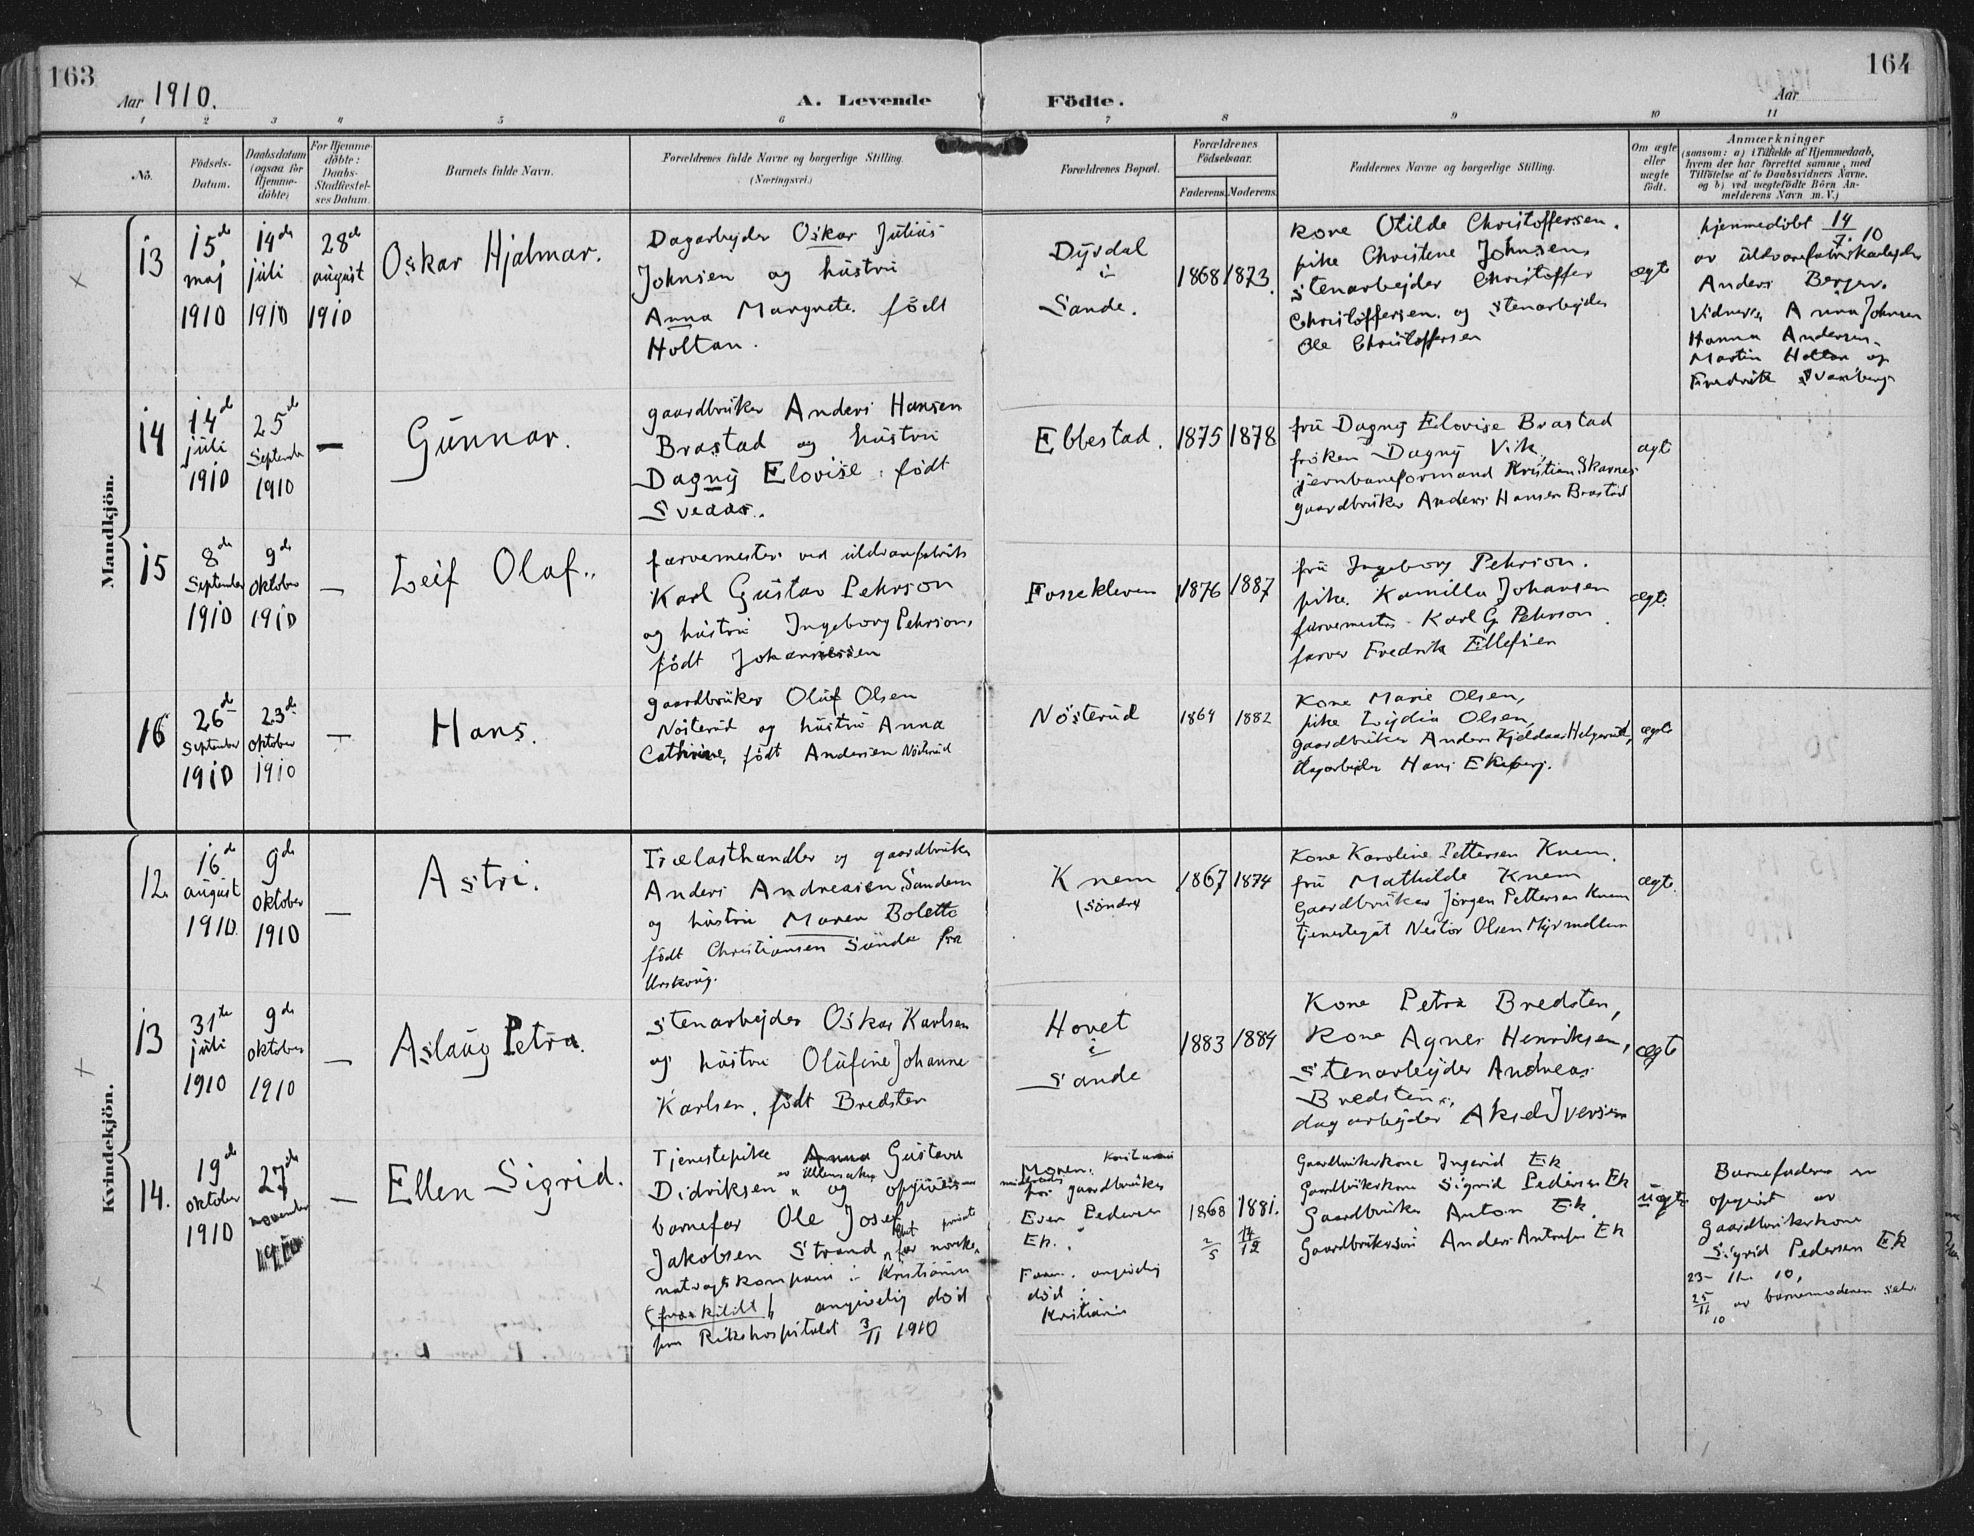 163
164
Aar 1910.
A. Levende
Födte.
Aar
1
2
3
4
5
6
7
8
9
10
11
No.
Födsels-
Datum.
Daabsdatum
(ogsaa for
Hjemme-
döbte)
For Hjemme-
döbte:
Daabs-
Stadfæstel-
ses Datum.
Barnets fulde Navn.
Forældrenes fulde Navne og borgerlige Stilling.
(Næringsvei.)
Forældrenes Bopæl.
Forældrenes
Födselsaar.
Faderens.
Moderens.
Faddernes Navne og borgerlige Stilling.
Om ægte
eller
uægte
födt.
Anmærkninger
(saasom: a) i Tilfælde af Hjemmedaab,
hvem der har forrettet samme, med
Tilföielse af to Daabsvidners Navne.
og b) ved uægtefödte Börn An-
melderens Navn m. V.)
Mandkjön.
13
15de
maj
1910
14de
juli
1910
28de
august
1910
Oskar Hjalmar.
Dagarbejder Oskar Julius
Johnsen og hustru
Anna Margrete. født
Holtan.
Dyrdal
i
Sande.
1868
1873.
kone Otilde Christoffersen.
pike Christene Johnsen,
stenarbejder Christoffer
Christoffersen. og stenarbejder
Ole Christoffersen
ægte
hjemmedøbt 14/7.10
av uldvarefabrikarbejder
Anders Berger.
Vidner: Anna Johnsen
Hanna Andersen.
Martin Holtan og
Fredrik Svanberg
14
14de
juli
1910
25de
September
1910
—
Gunnar.
gaardbruker Anders Hansen
Brastad og hustru
Dagny Elovise. født
Sveaas.
Ebbestad.
1875
1878
fru Dagny Elovise Brastad
frøken Dagny Vik,
jernbaneformand Kristian Skarnes
gaardbruker Anders Hansen Brastad
ægte
15
8de
September
1910
9de
oktober
1910
—
Leif Olaf.
farvemester ved uldvarefabrik
Karl Gustav Pehrson
og hustru Ingeborg Pehrson,
født Johannessen
Fossekleven
1876
1887
fru Ingeborg Pehrson.
pike. Kamilla Johansen
farvemester Karl G. Pehrson
farver Fredrik Ellefsen
ægte.
16
26de
September
1910
23de
oktober
1910
—
Hans.
gaardbruker Oluf Olsen
Nøsterud og hustru Anna
Cathrine, født Andersen Nøsterud
Nøsterud
1864
1882
Kone Marie Olsen,
pike Lydia Olsen,
gaardbruker Anders Kjeldaas Helgerud,
dagarbejder Hans Ekeberg.
ægte
Kvindekjön.
12.
16de
august
1910
9de
oktober
1910
—
Astri.
Trælasthandler og gaardbruker
Anders Andreasen Sanden
og hustru Maren Bolette
født Christiansen Sunda fra
Urskoug.
Knem
(søndre)
1867
1874
Kone Karoline Pettersen Knem.
fru Mathilde Knem
Gaardbruker Jørgen Pettersen Knem
tjenestegut Nestor Olsen Myrmellem
ægte.
13
31te
juli
1910
9de
oktober
1910
—
Aslaug Petra.
stenarbejder Oskar Karlsen
og hustru Olufine Johanne
Karlsen, født Bredsten
Hovet
i
Sande
1883
1884
Kone Petra Bredsten,
Kone Agnes Henriksen,
Stenarbejder Andreas
Bredsten,
dagarbejder Aksel Iversen
ægte
14.
19de
oktober
1910
27de
november
1910
—
Ellen Sigrid.
Tjenestepike Anna Gustava
Didriksen av Ullensaker og opgiven
barnefar Ole Josef
Jakobsen Strand, for norske
natvagtkompani i Kristiania
(fraskildt) angivelig død
paa Rikshospitalet 3/11 1910
Moren.
hos gaardbruker
Even Pedersen
Ek.
Faren. angivelig
død i
Kristiania
1868
2/5
1881.
14/12
Gaardbrukerkone Ingerid Ek
Gaardbrukerkone Sigrid Pedersen Ek
Gaardbruker Anton Ek
Gaardbrukersøn Anders Antonsen Ek
uægte
Barnefaderen er
opgivet av
gaardbrukerkone
Sigrid Pedersen Ek
23- 11. 10,
25/11 10 av barnemoderen selv.